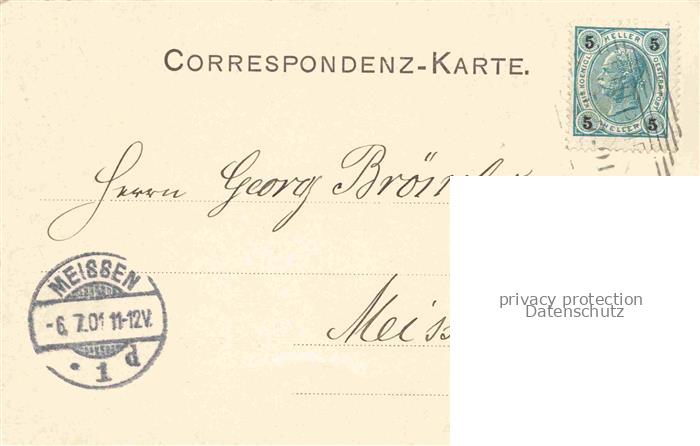 CORRESPONDENZ-KARTE.
5 HELLER 5
KEIS. KOENIGL. OESTERR. POST
5 HELLER 5
Herrn Georg
privacy protection
Datenschutz
MEISSEN
-6.7.01 11-12V.
p 1